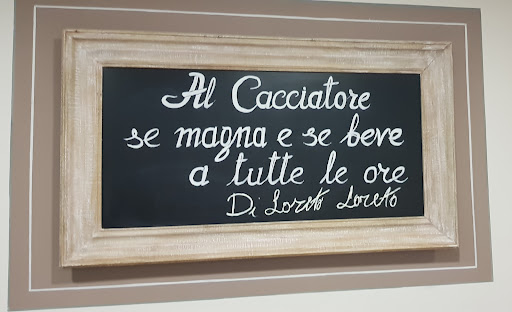 Al Cacciatore
se magna e se beve
a tutte le ore
Di Loreto Loreto